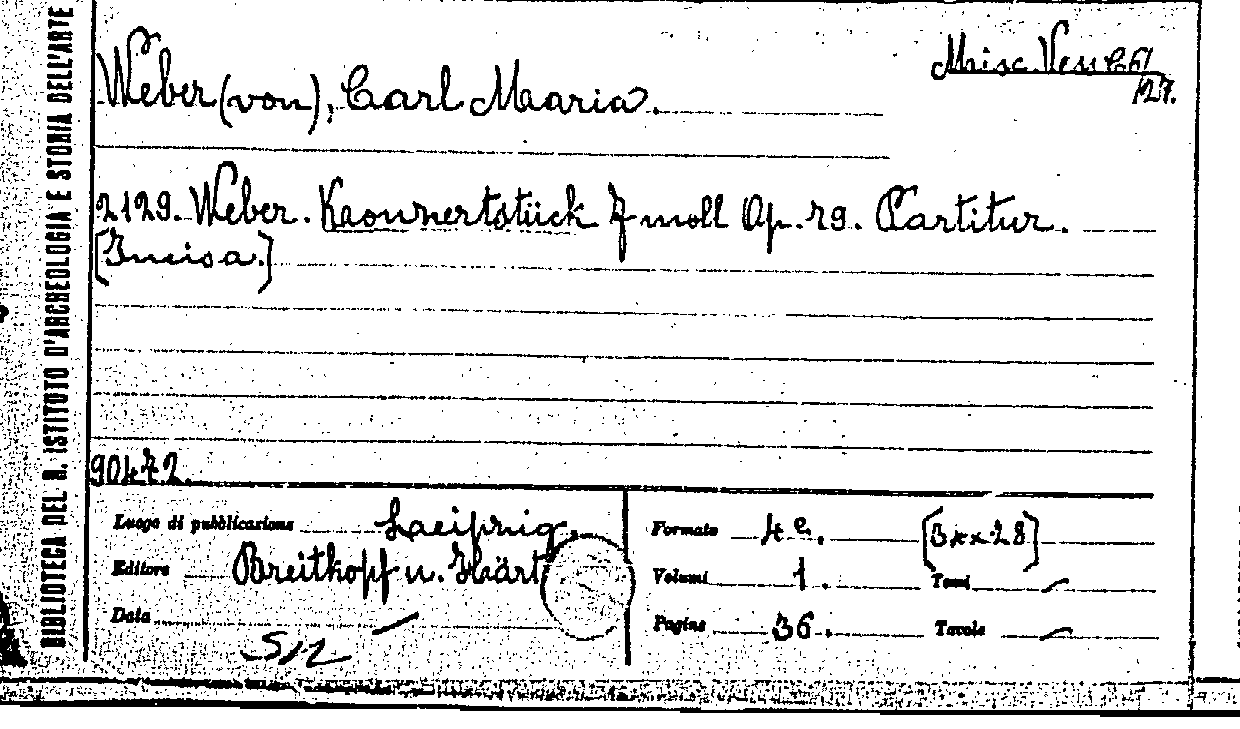 BIBLIOTECA DEL R. ISTITUTO D'ARCHEOLOGIA E STORIA DELL'ARTE
Misc. Vess
127.
Weber (von), Carl Maria.
2129. Weber. Konzertstück F moll Op. 79. Partitur.
[Incisa.]
90472.
Luogo di pubblicazione Laeipzig.
Editore Breitkopf u. Härt
Data
Formato 4º. [34x28]
Volumi 1. Tomi —
Pagine 36. Tavole —